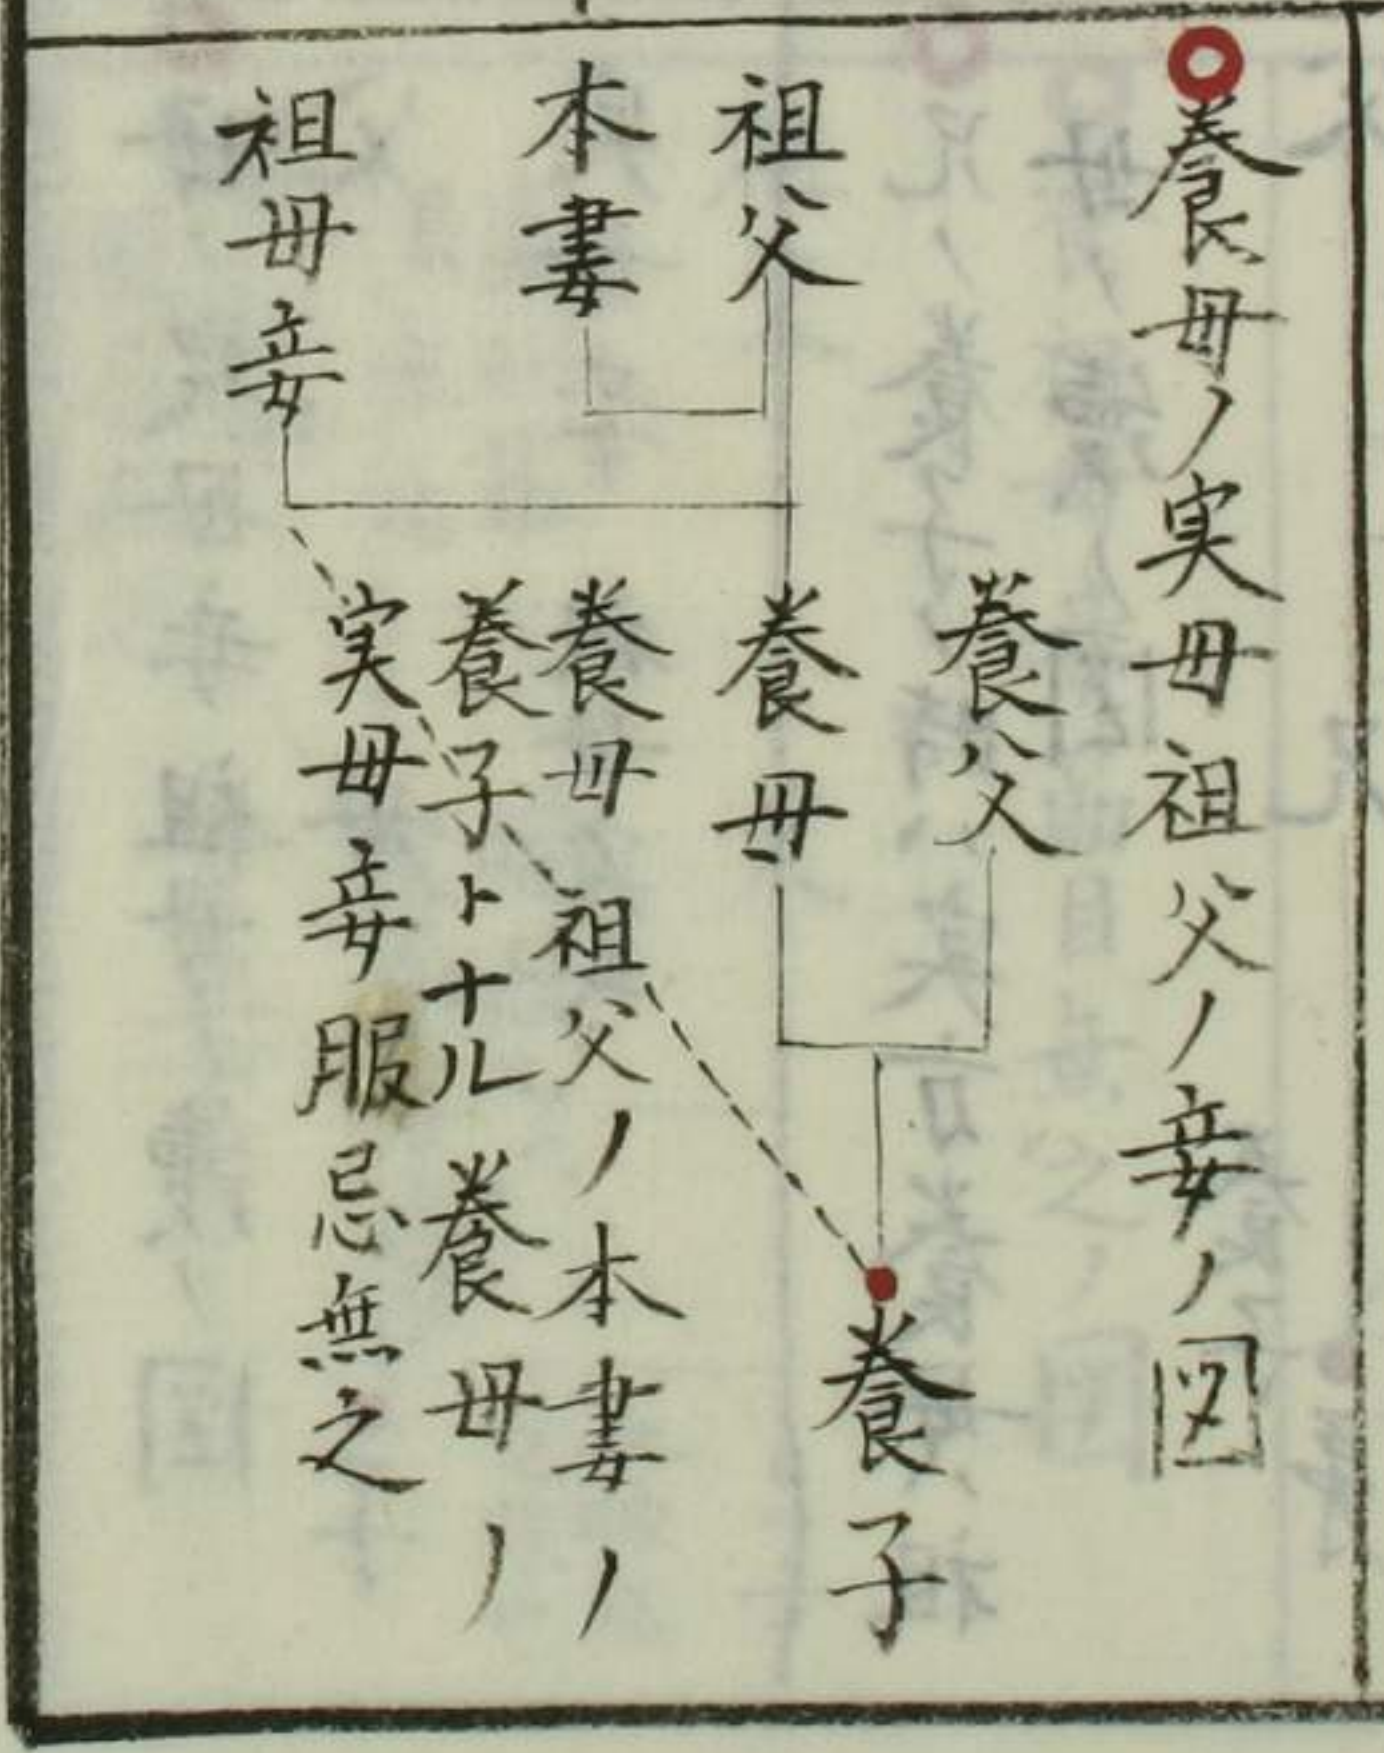 養母ノ実母祖父ノ妾ノ図
祖父
本妻
祖母妾
養父
養母
養母祖父ノ本妻ノ
養子トナル養母ノ
実母妾服忌無之
養子